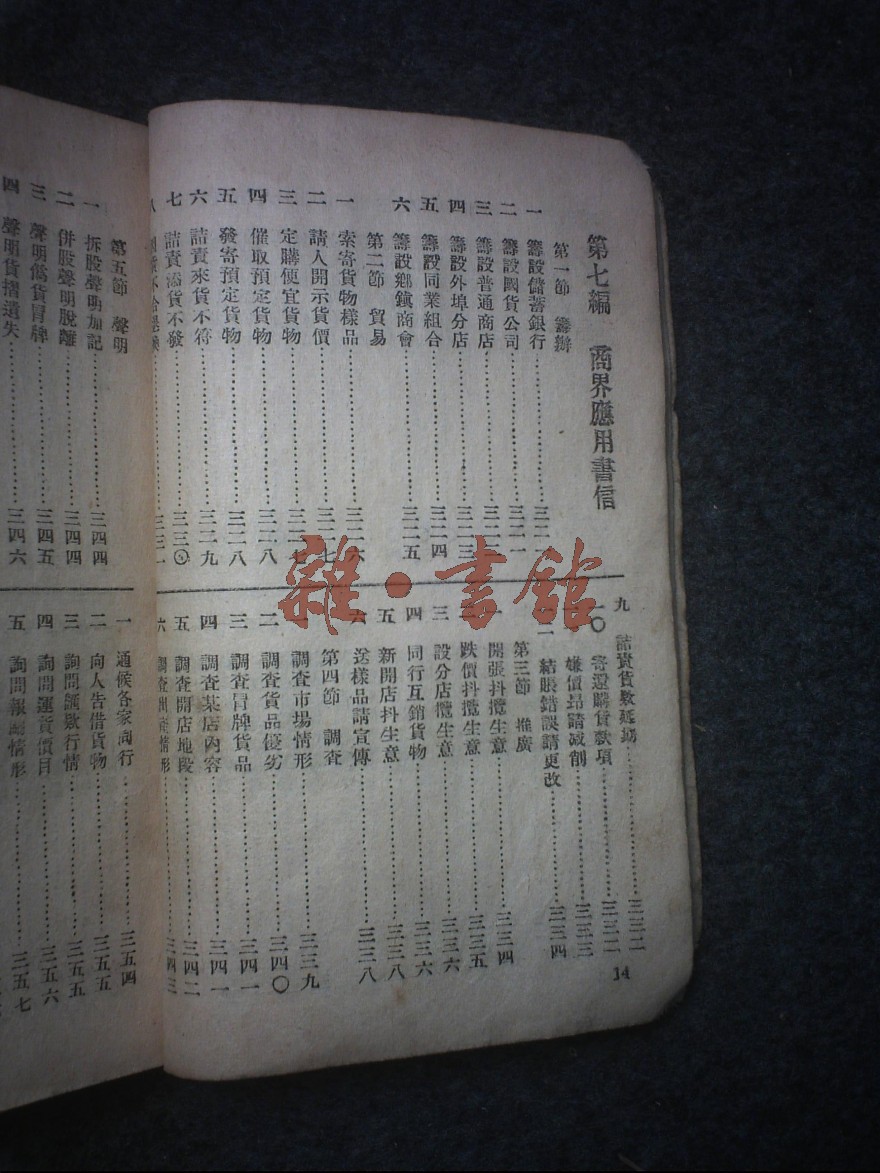 第七編 商界應用書信
第一節 籌辦
一 籌設儲蓄銀行
二 籌設國貨公司
三 籌設普通商店
四 籌設外埠分店 三二三
五 籌設同業組合 三二四
六 籌設鄉鎮商會 三二五
第二節 貿易
一 索寄貨物樣品 三二六
二 請人開示貨價 三二七
三 定購便宜貨物
四 催取預定貨物 三二八
五 發寄預定貨物 三二八
六 詰責來貨不符 三二九
七 詰責添貨不發 三三〇
九 詰責貨數短缺 三三二
一〇 寄還購貨款項 三三二
嫌價昂請減削 三三三
結賬錯誤請更改 三三四
第三節 推廣
開張抖攬生意 三三四
跌價抖攬生意 三三五
三 設分店攬生意 三三六
四 同行互銷貨物 三三六
五 新開店抖生意 三三八
六 送樣品請宣傳 三三八
第四節 調查
一 調查市場情形 三三九
二 調查貨品優劣 三四〇
三 調查冒牌貨品 三四一
四 調查某店內容 三四一
五 調查開店地段 三四二
六 三四三
14
第五節 聲明
一 拆股聲明加記 三四四
二 併股聲明脫離 三四四
三 聲明僞貨冒牌 三四五
四 聲明貨摺遺失 三四六
一 通候各家同行 三五四
二 向人告借貨物 三五五
三 詢問匯款行情 三五五
四 詢問運貨價目 三五六
五 詢問報關情形 三五七
雜·書館